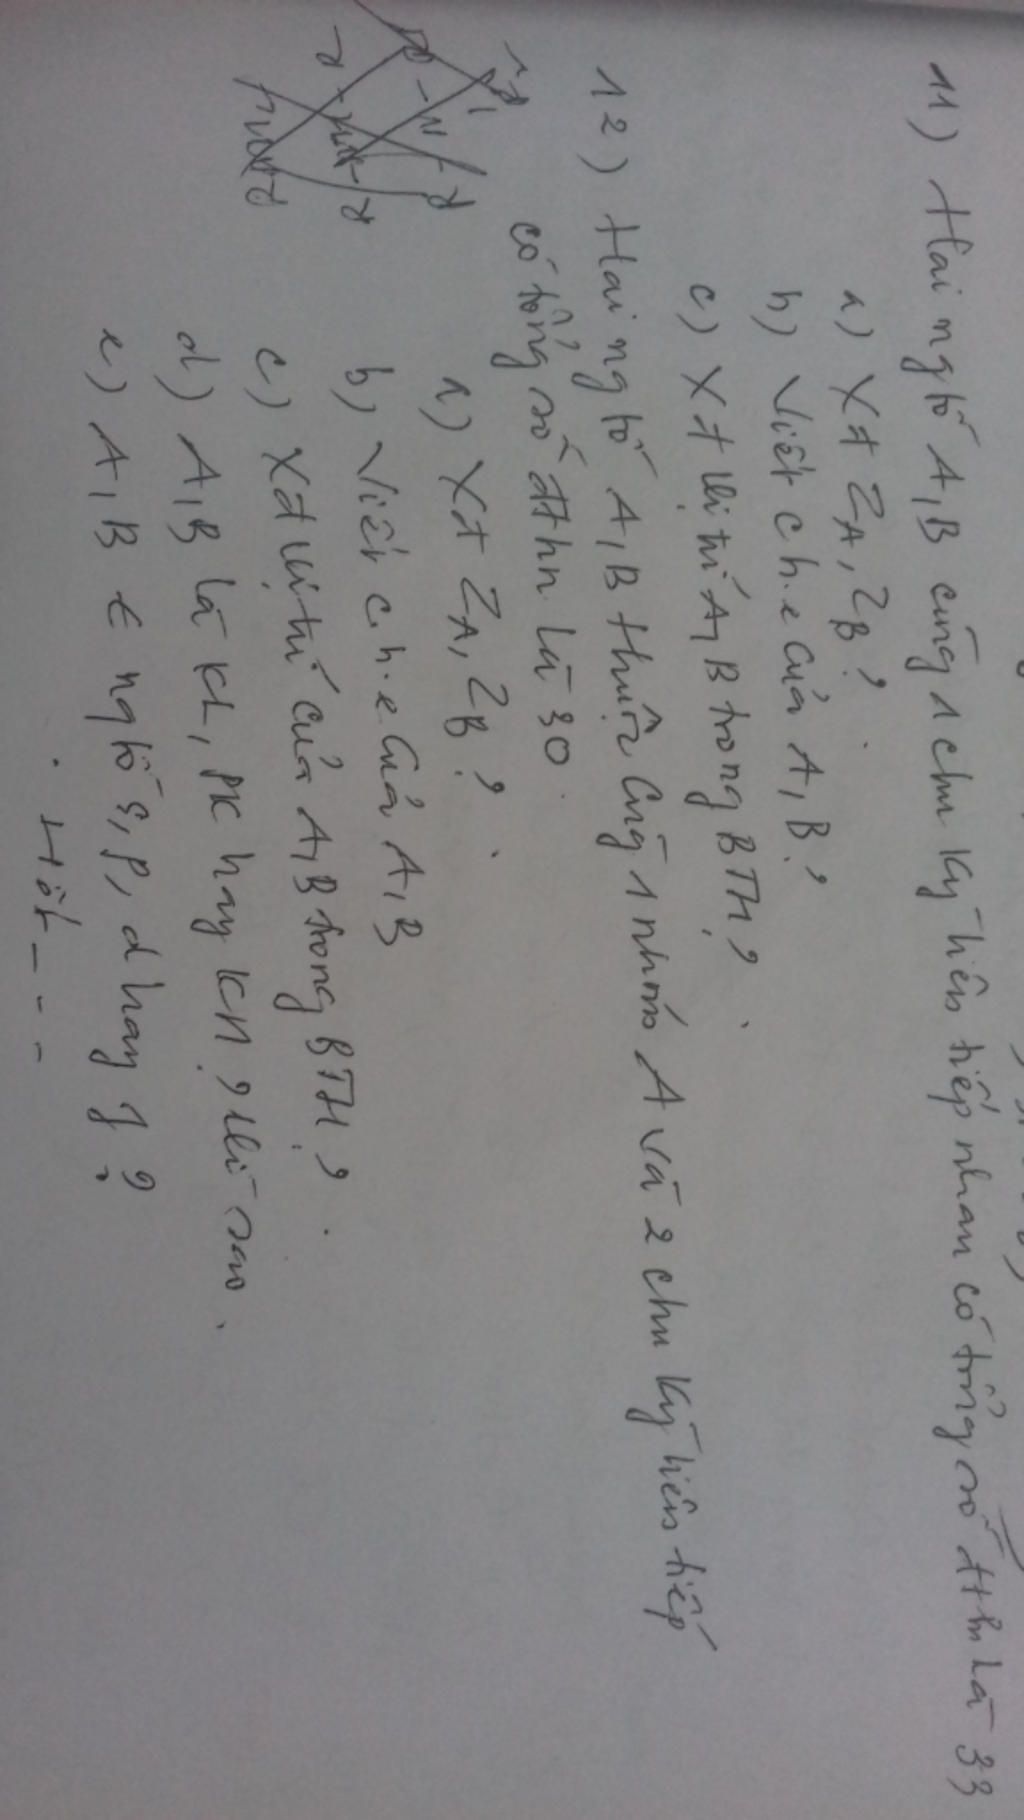 11) Hai ng tố A, B cùng 1 chu kỳ liên tiếp nhau có tổng số đthn là 33
a) XĐ ZA, ZB?
b) Viết c.h.e của A, B?
c) XĐ vị trí A, B trong BTH?
12) Hai ng tố A, B thuộc cùng 1 nhóm A và 2 chu kỳ liên tiếp
có tổng số đthn là 30
a) XĐ ZA, ZB?
b) Viết c.h.e của A, B
c) XĐ vị trí của A, B trong BTH?
d) A, B là KL, PK hay KH? Vì sao.
e) A, B ∈ ng tố s, p, d hay f?
Hết - - -